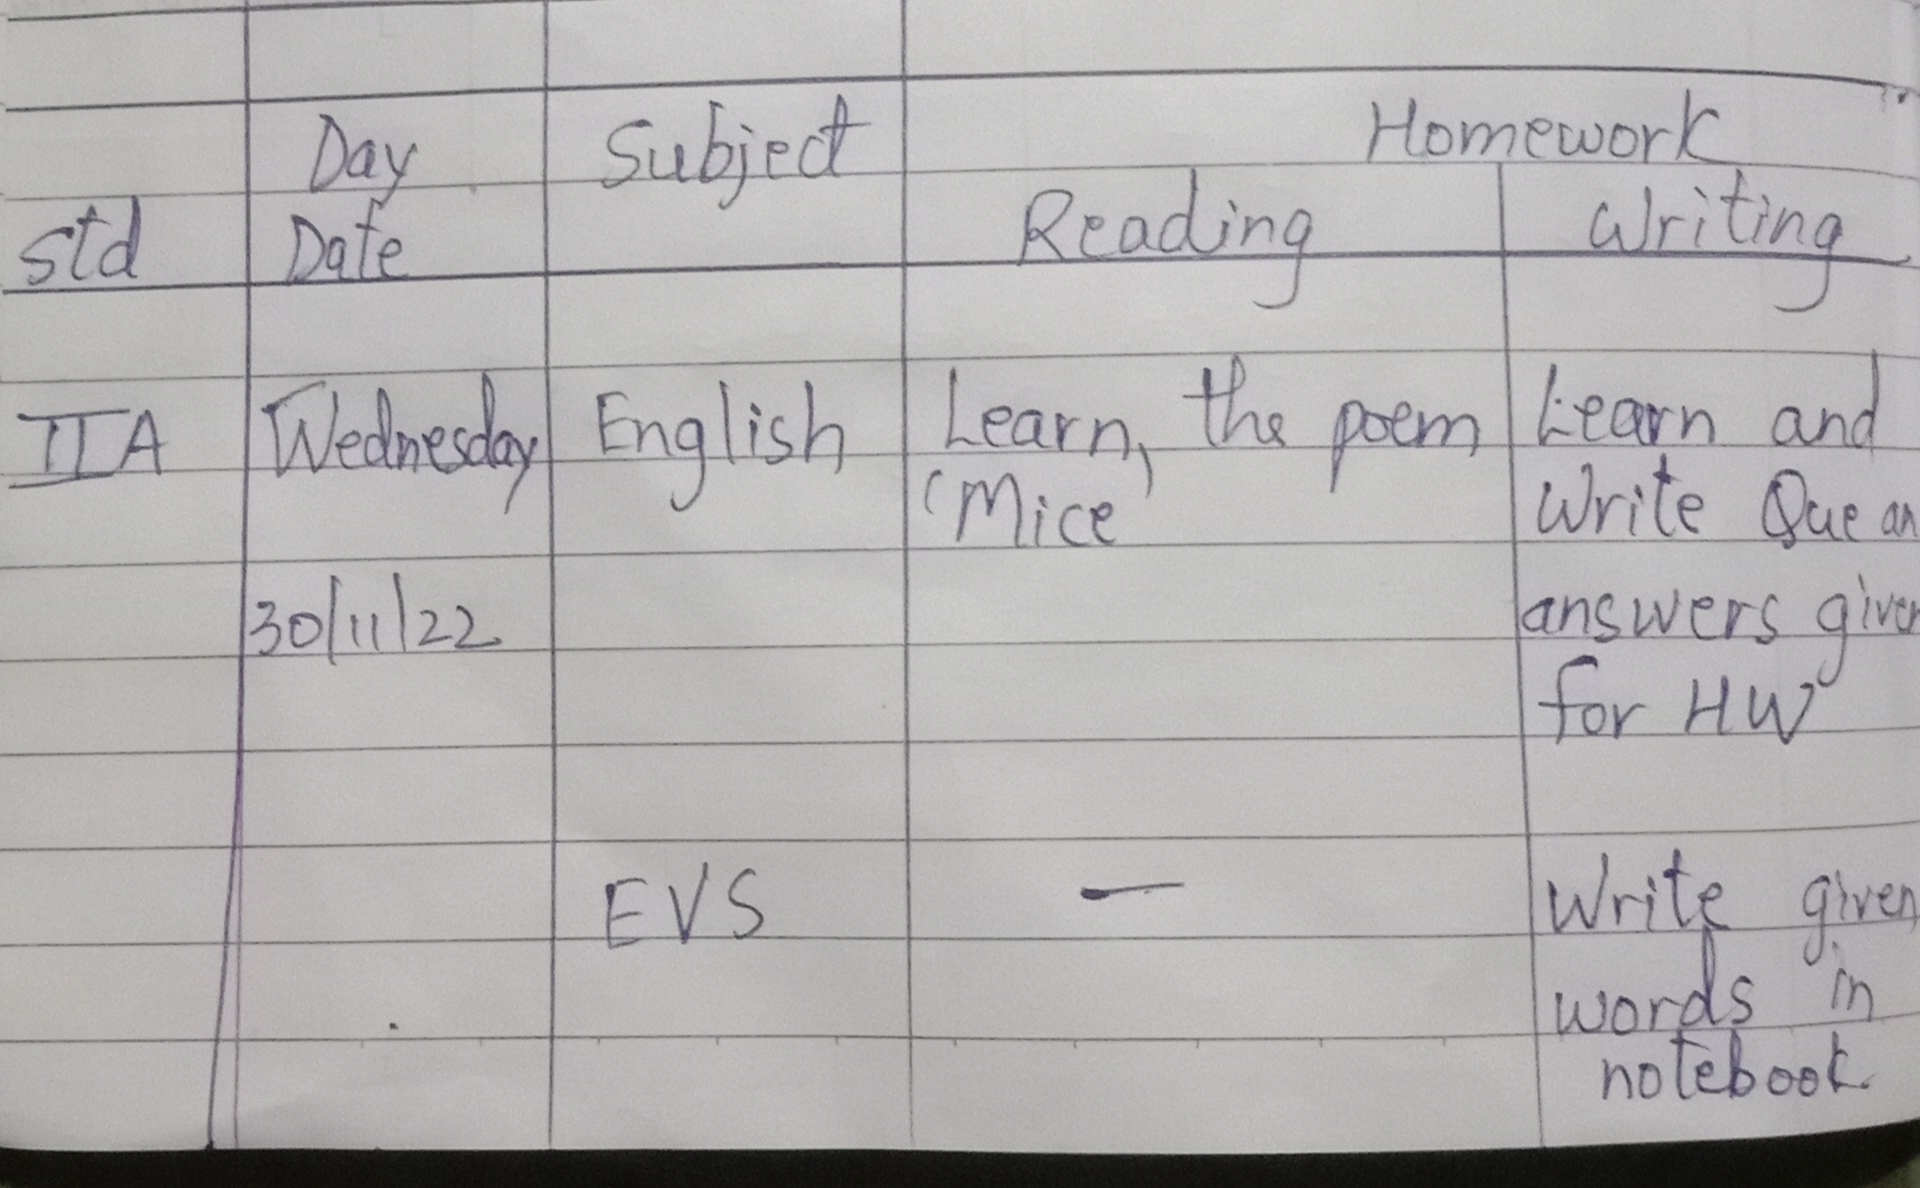 Homework
Day Subject
std Date Reading Writing
IIA Wednesday English Learn, the poem Learn and
'Mice' Write Que an
30/11/22 answers given
for HW
EVS — Write given
words in
notebook